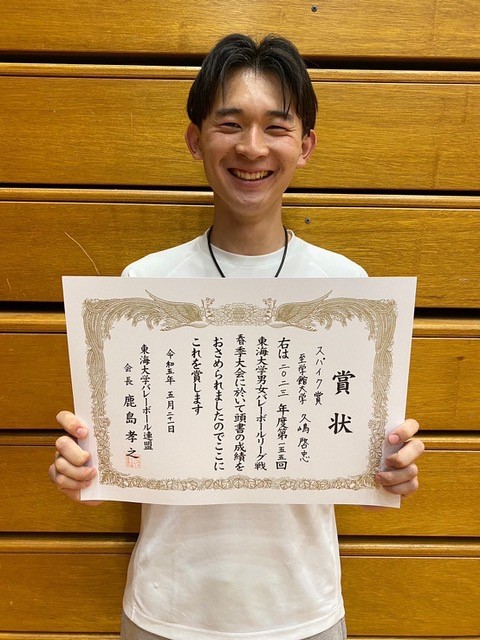 賞状
スパイク賞
至学館大学 久嶋啓忠
右は二〇二三年度第一五五回
東海大学男女バレーボールリーグ戦
春季大会に於いて頭書の成績を
おさめられましたのでここに
これを賞します
令和五年五月二十一日
東海大学バレーボール連盟
会長 鹿島孝之